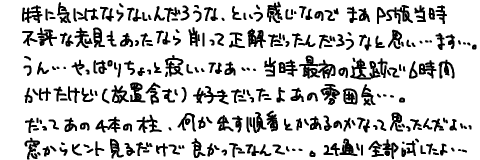 特に気にはならないんだろうな、という感じなので まあPS版当時
不評な意見もあったなら削って正解だったんだろうなと思い…ます…。
うん…やっぱりちょっと寂しいなあ… 当時最初の遺跡で6時間
かけたけど(放置含む)好きだったよあの雰囲気…。
だってあの4本の柱、何か出す順番とかあるのかなって思ったんだよ…
窓からヒント見るだけで良かったなんて…。24通り全部試したよ…